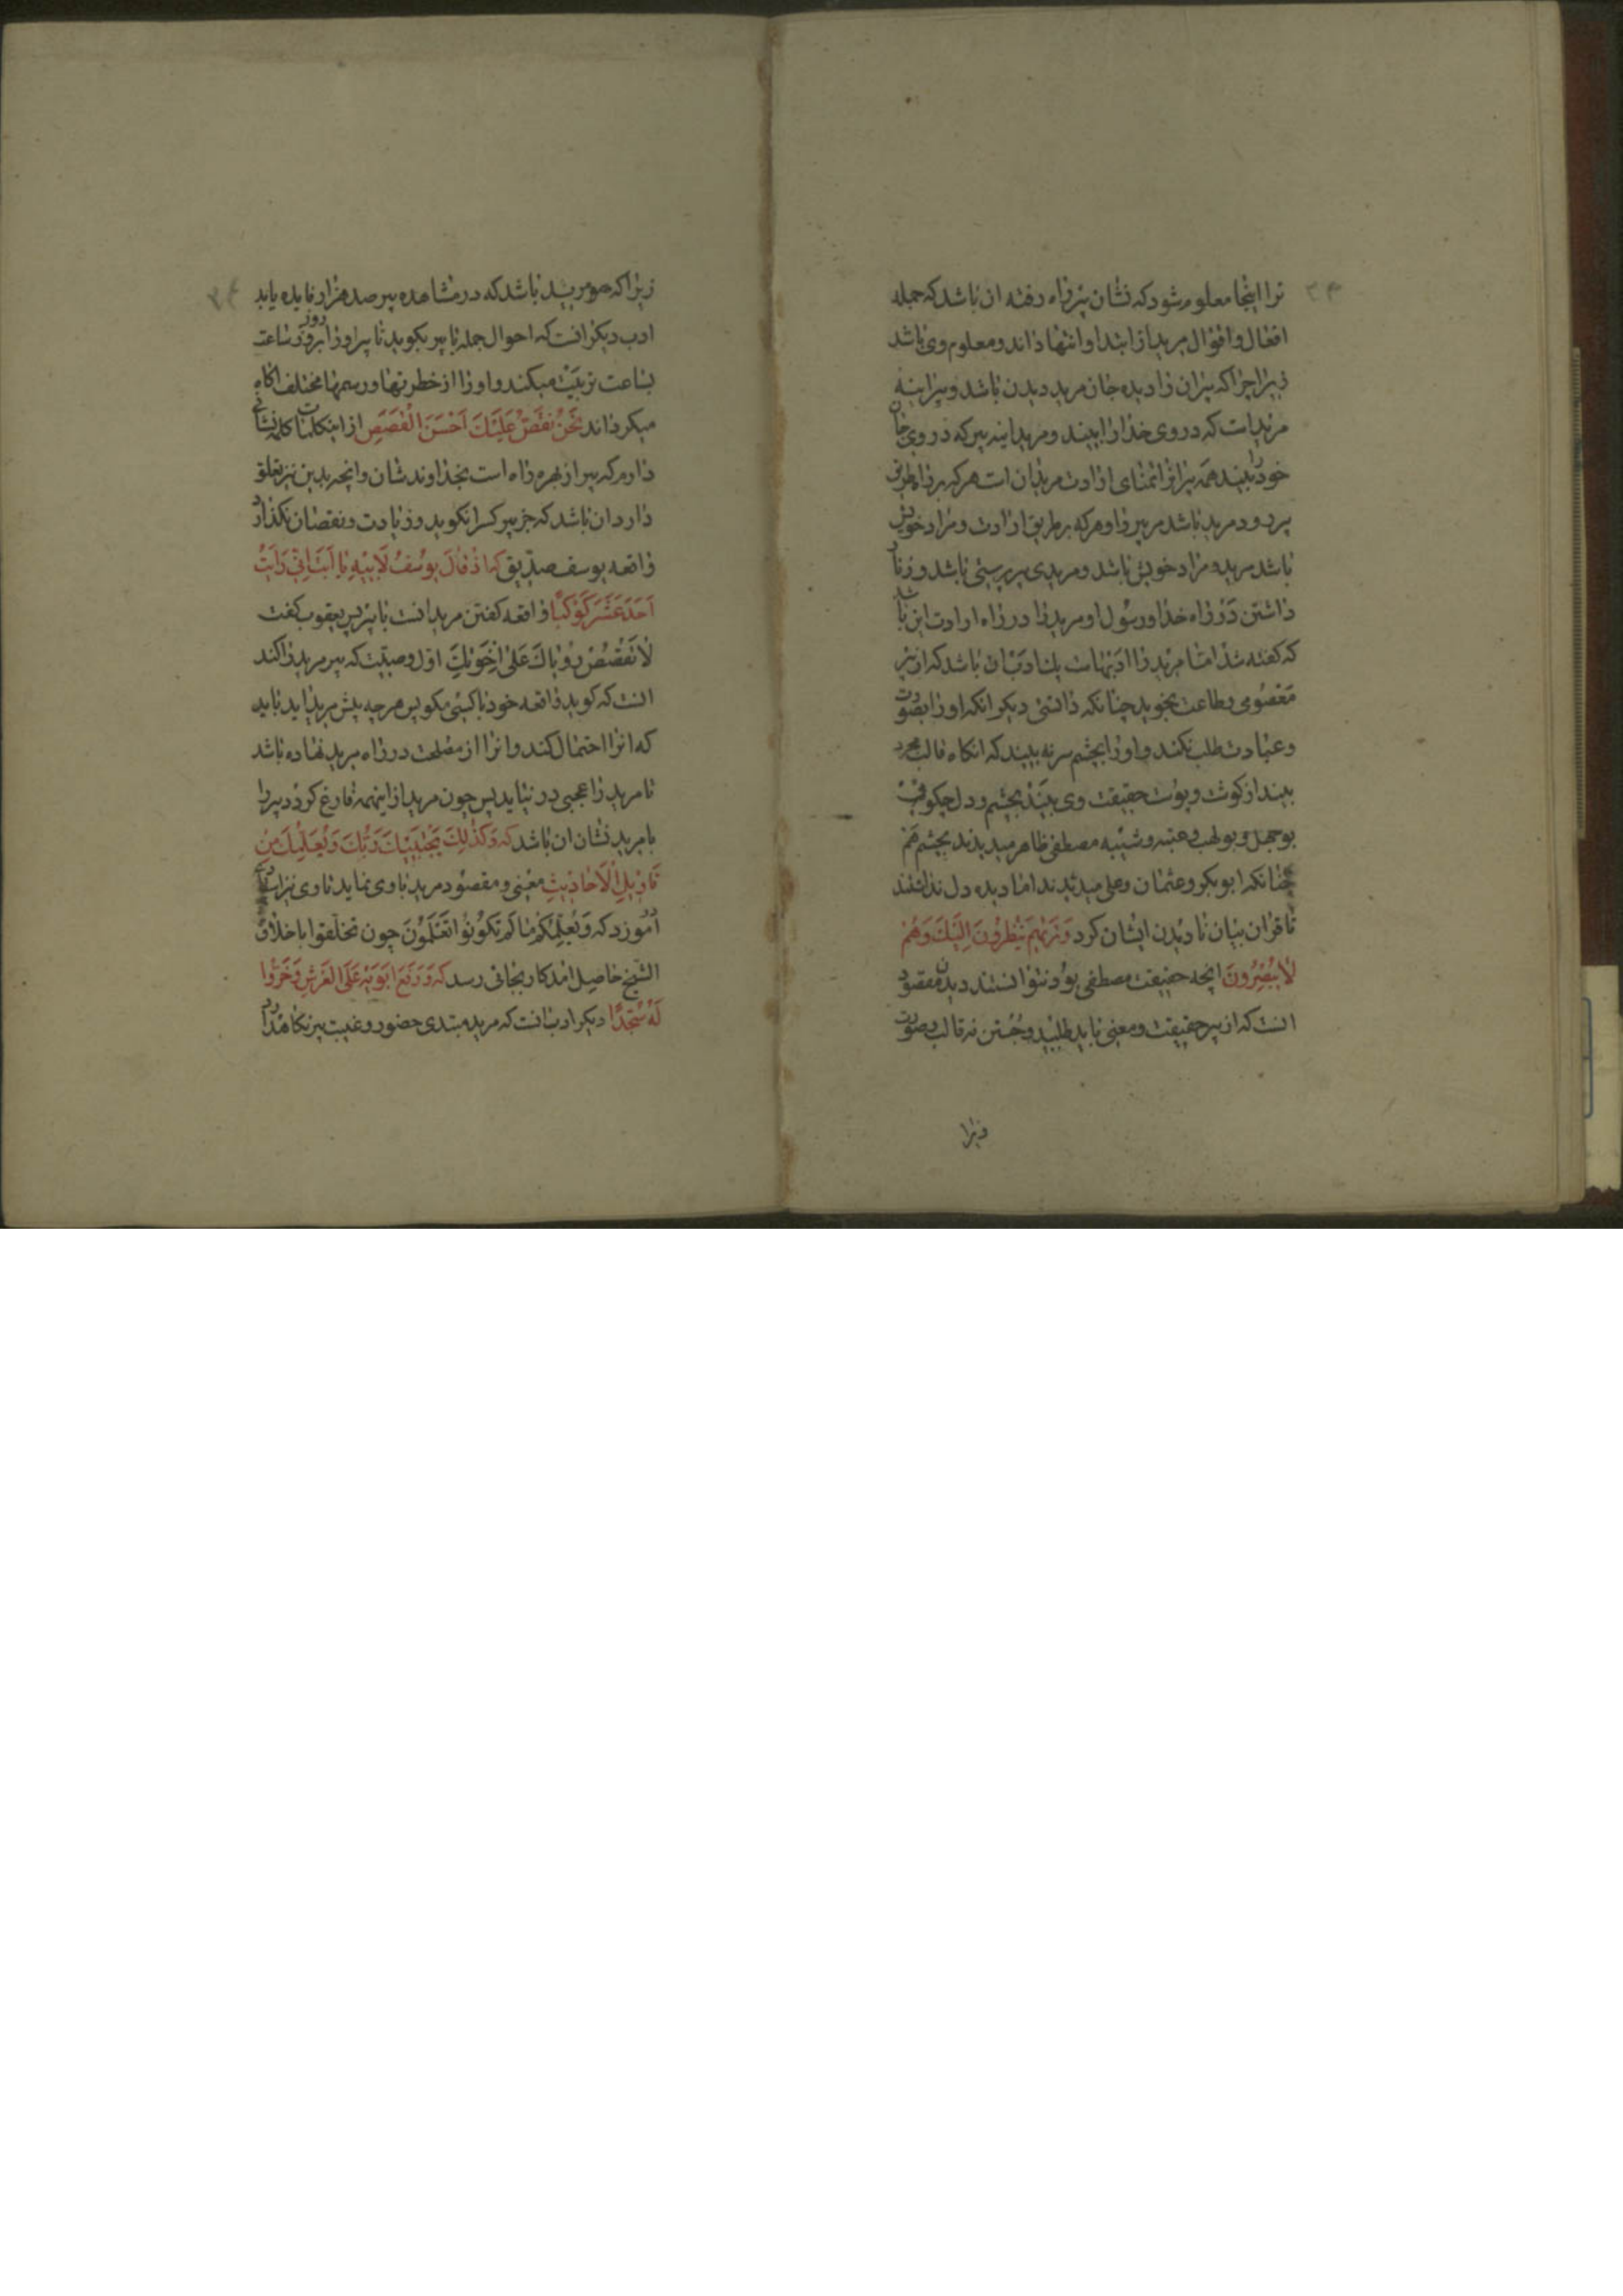 ترا اینجا معلوم شود که نشان پیر راه رفته آن باشد که جمله
افعال و اقوال مرید از ابتدا و انتها داند و معلوم وی باشد
زیرا چرا که پیران را دیده جان مرید دیدن باشد و پیر آینه
مریدست که در وی خدا را بیند و مرید آینه پیر که در وی جان
خود را بیند همه پیرانرا تمنای ارادت مریدان است هر که براه
پیر رود مرید باشد مر پیر را و هر که بر طریق ارادت و مراد خویش
باشد مرید مراد خویش باشد و مریدی پیر پرستی باشد و زنار
داشتن در راه خدا و رسول او مرید را در راه ارادت این باشد
که گفته شد اما مرید را ادبهاست یکی ادب آن باشد که از پیر
معصومی و طاعت نجوید چنانکه دانستی دیگر آنکه او را بصورت
و عبادت طلب نکند و او را بچشم سر نه بیند که آنگاه قالب مجرد
بیند از گوشت و پوست حقیقت وی بیند بچشم و دل چگونگی
بوجهل و بولهب و عتبه و شیبه مصطفی ظاهر میدیدند بچشم هم
چنانکه ابوبکر و عثمان و علی میدیدند اما دیده دل نداشتند
تا قرآن بیان نادیدن ایشان کرد وَتَرٰیهُمْ یَنْظُرُونَ اِلَیْکَ وَهُمْ
لٰا یُبْصِرُونَ آنچه حقیقت مصطفی بود نتوانستند دیدن مقصود
آنست که از پیر حقیقت و معنی باید طلبید و جستن نه قالب و صورت
زیرا
زیرا که هر مرید باشد که در مشاهده پیر صد هزار فایده یابد
ادب دیگر آنست که احوال جمله با پیر بگوید تا پیر او را روز بروز و ساعت
بساعت تربیت میکند و او را از خطرتها و رسمها مختلف آگاه
میگرداند نَحْنُ نَقُصُّ عَلَیْکَ اَحْسَنَ الْقَصَصِ از این کلمات کلمه نشانی
دارم که پیر از بهره راه است بخداوندشان و آنچه بدین نیز تعلق
دارد آن باشد که جز پیر کس را نگوید و زیادت و نقصان نگذارد
واقعه یوسف صدیق کما اذ قٰالَ یُوسُفُ لِاَبِیْهِ یٰا اَبَتِ اِنّی رَاَیْتُ
اَحَدَ عَشَرَ کَوْکَبًا واقعه گفتن مرید آنست با پیر پس یعقوب گفت
لٰا تَقْصُصْ رُؤْیٰاکَ عَلٰی اِخْوَتِکَ اول وصیت که پیر مرید را کند
آنست که گوید واقعه خود با کسی مگو پس هر چه پیش مرید آید باید
که آنرا احتمال کند و آنرا از مصلحت در راه مرید نهاده باشد
تا مرید را عجبی در نیاید پس چون مرید از اینهمه فارغ گردد پیر را
با مرید نشان آن باشد که وَکَذٰلِکَ یَجْتَبِیْکَ رَبُّکَ وَیُعَلِّمُکَ مِنْ
تَاْوِیْلِ الْاَحٰادِیْثِ معنی و مقصود مرید با وی نماید تا وی نیز
آموزد که وَیُعَلِّمُکُمْ مٰا لَمْ تَکُونُوا تَعْلَمُونَ چون تخلقوا باخلاق
الشیخ حاصل آمد کار بجائی رسد که وَرَفَعَ اَبَوَیْهِ عَلَی الْعَرْشِ وَخَرُّوا
لَهُ سُجَّدًا دیگر ادب آنست که مرید مبتدی حضور و غیبت پیر نگاهدارد